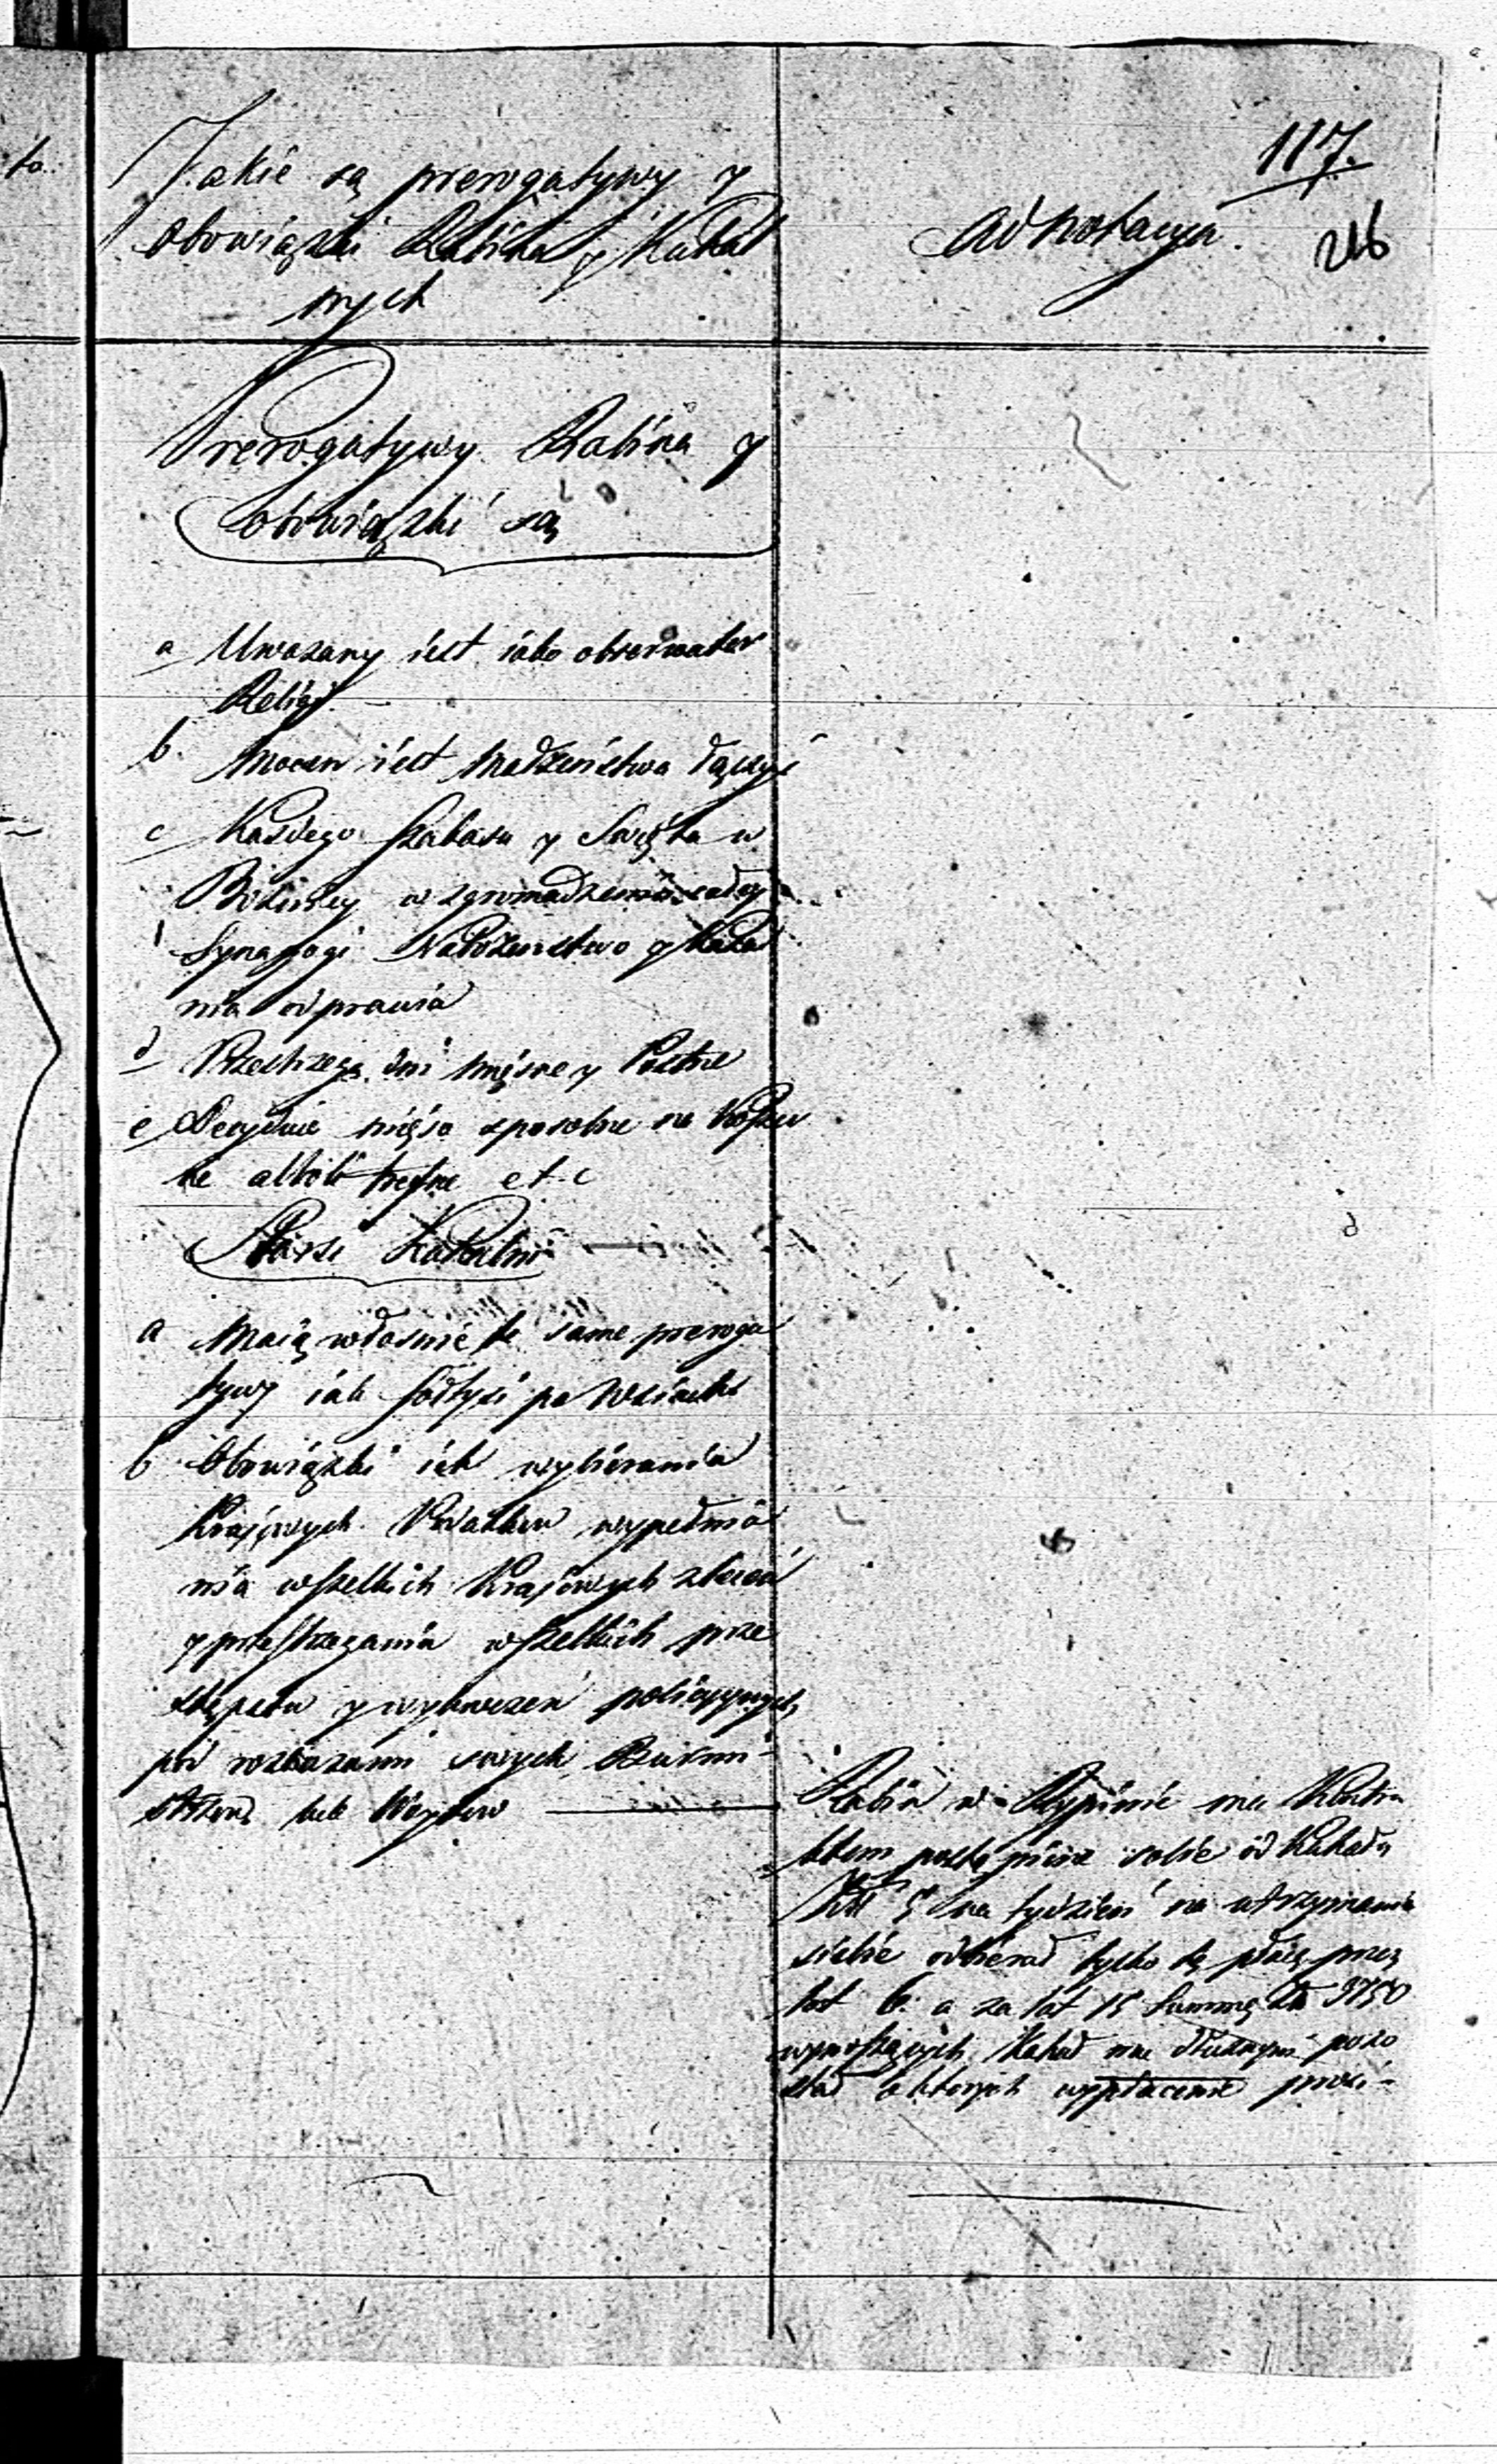 to.
Jakie są prerogatywy y
Obowiązki Rabina y Kahal
nych
117.
Adnotacyia.
216
Prerogatywy Rabina y
obowiązki są
a Uwazany iest iako obserwator
Religi
b. Mocen iest Małżeństwa łączyć
c Każdego szabasu y Święta w
Bóżnicy w zgromadzeniu całey
Synagogi Nabożeństwo y Kaza
nia odprawia
d Przestrzega dni mięsne y Postne
e Decyduie mięso sposobne na Koszer
ne albo trefne et. c
Starsi Kahalni
a Maią własnie te same preroga
tywy iak sołtysi po Wsiach
b Obowiązki ich wybierania
Krajowych Podatków wypełnia
nia wszelkich Krajowych zleceń
y przestrzegania wszelkich prze
stępstw y wykroczeń policyjnych
pod rozkazami swych Burmi-
strzów lub Woytow
Rabin w Rypinie ma Kontra
ktem postąpione sobie od Kahału
5 na tydzień na utrzymanie
siebie odbierał tylko tę płacę przez
lat 6. a za lat 15 Summę 3750
wynoszących Kahał mu dłużnym pozo
stał o których wypłacenie prosi-